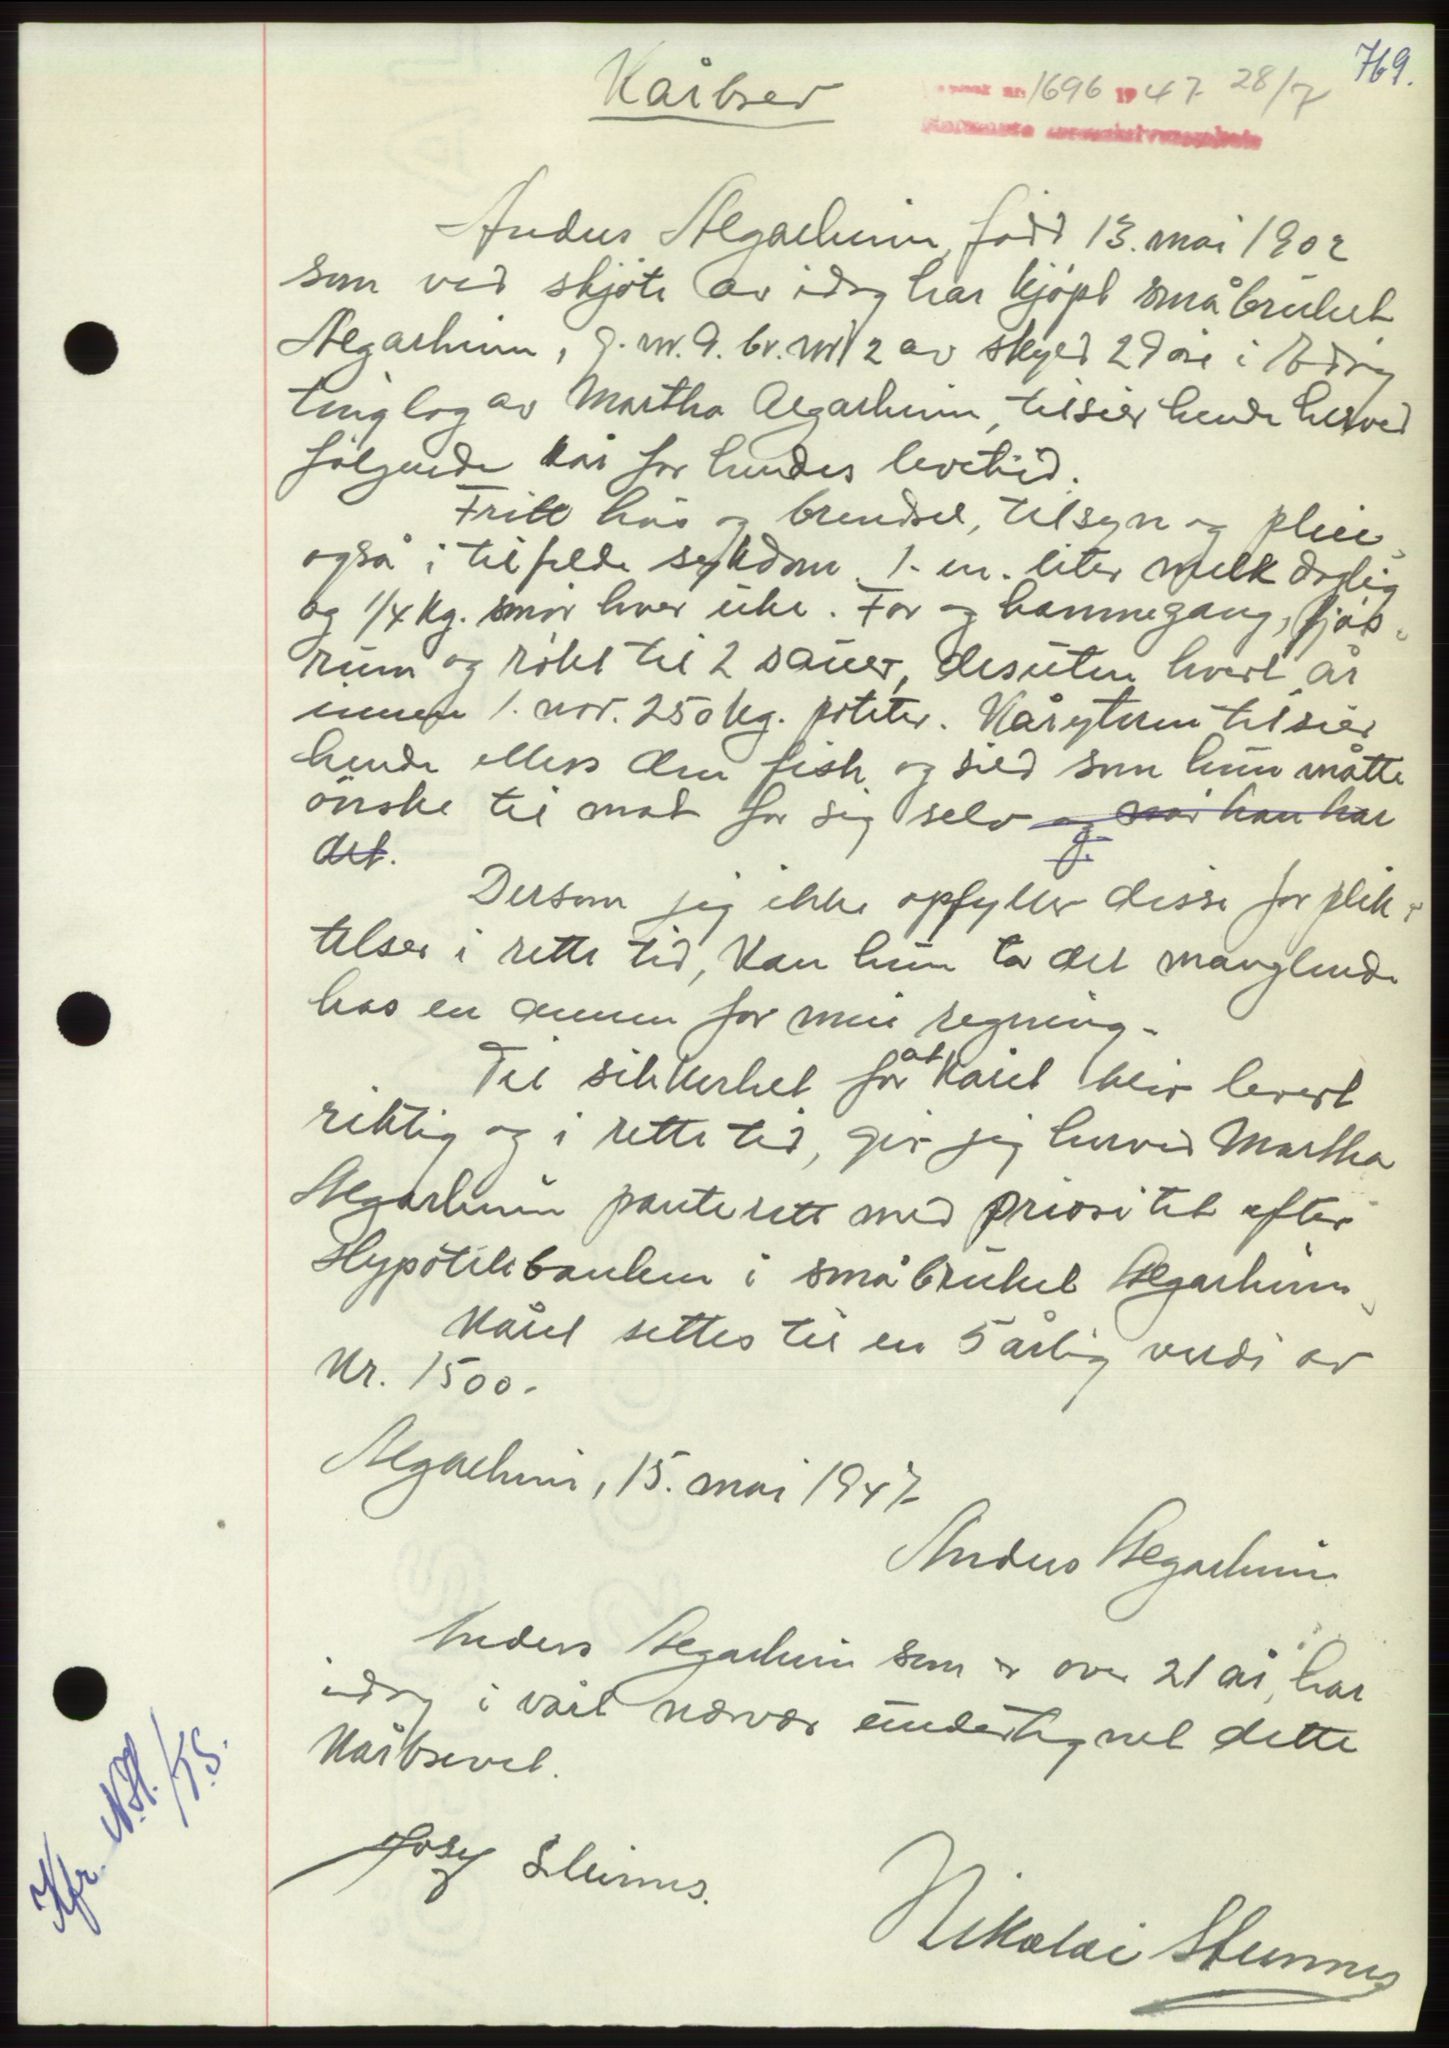 769.
Kårbrev
1696 1947 28/7
AndersÆgarheim, född 13. mai 1902
som ved skjöte av idag har kjöpt småbruket
Ægarheim, g. nr. 9. br. nr. 12 av skyld 29 öre i
tinglag av Martha Ægarheim, tilsier hende herved
fölgende kår for hendes levetid.
Fritt hus og brendsel, tilsyn og pleie,
også i tilfelde sykdom. 1. en. liter melk daglig
og 1/4 kg. smör hver uke. For og hamnegang, fjös-
rum og rökt til 2 sauer, desuten hvert år
innen 1. nov. 250 kg. poteter. Kåryteren tilsier
hende ellers den fisk og sild som hun måtte
önske til mat for sig selv og når han har
det.
Dersom jeg ikke opfyller disse forplik-
telser i rette tid, kan hun ta det manglende
hos en annen for min regning.
Til sikkerhet for at kåret blir levert
riktig og i rette tid, gir jeg herved Martha
Ægarheim panterett med prioritet efter
Hypotekbanken i småbruket Ægarheim.
Kåret settes til en 5 årlig verdi av
Kr. 1500.-
Ægarheim, 15. mai 1947
Anders Ægarheim
Anders Ægarheim som er over 21 år, har
idag i vårt nærvær undertegnet dette
Kårbrevet.
Steinnes.
Nikolai Steinnes
Kfr. N.H./T.S.